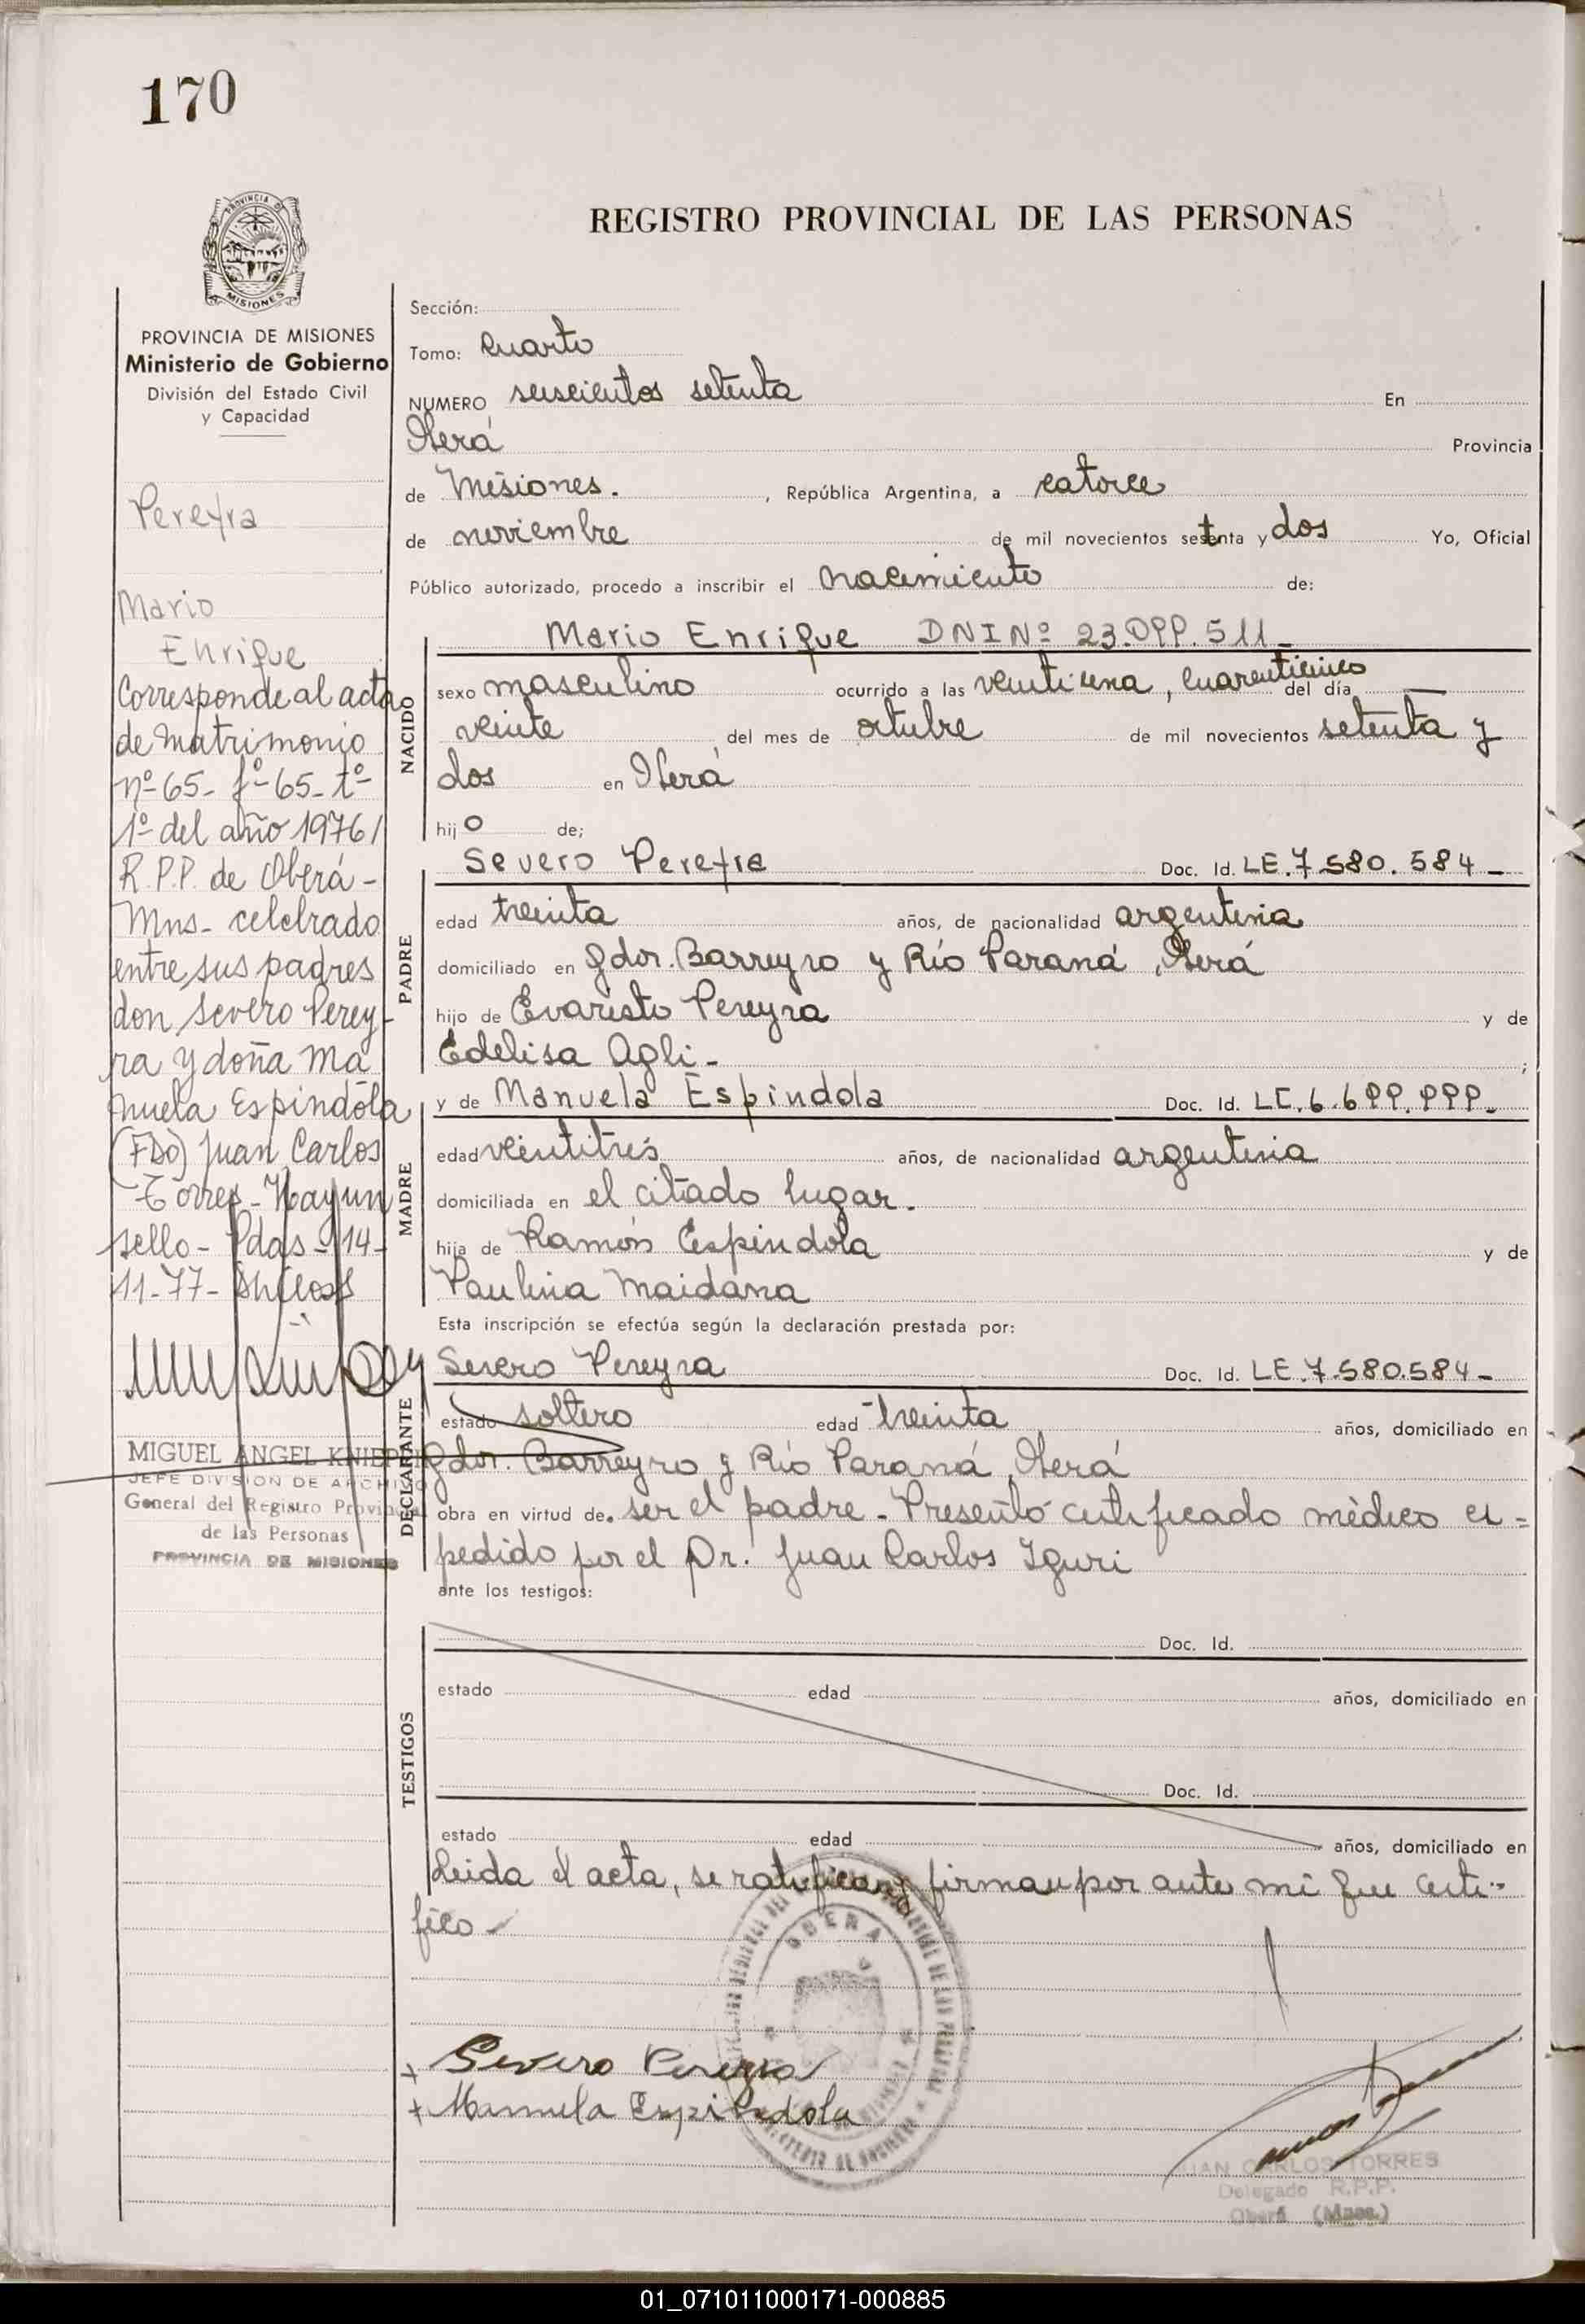 170
PROVINCIA DE
MISIONES
REGISTRO PROVINCIAL DE LAS PERSONAS
PROVINCIA DE MISIONES
Ministerio de Gobierno
División del Estado Civil
y Capacidad
Pereyra
Mario
Enrique
Corresponde al acta
de matrimonio
nº-65- fº-65-tº-
1º- del año 1976/
R.P.P. de Oberá-
Mns- celebrado
entre sus padres
don Severo Perey-
ra y doña Ma
nuela Espíndola
(FDO) Juan Carlos
Torres - Hay un
sello - Pdas - 14-
11-77-
MIGUEL ANGEL
JEFE DIVISION DE ARCHIVO
General del Registro Provincial
de las Personas
PROVINCIA DE MISIONES
Sección:
Tomo: Cuarto
NUMERO seiscientos setenta En
Oberá Provincia
de Misiones. , República Argentina, a catorce
de noviembre de mil novecientos setenta y dos Yo, Oficial
Público autorizado, procedo a inscribir el nacimiento de:
NACIDO
Mario Enrique DNI Nº 23.099.511-
sexo masculino ocurrido a las veintiuna, cuarenticinco del día
veinte del mes de octubre de mil novecientos setenta y
dos en Oberá
hijo de;
PADRE
Severo Pereyra Doc. Id. LE.7.580.584-
edad treinta años, de nacionalidad argentina
domiciliado en Gdor. Barreyro y Río Paraná, Oberá
hijo de Evaristo Pereyra y de
Edelisa Agli- ;
MADRE
y de Manuela Espindola Doc. Id. LC.6.699.999-
edad veintitrés años, de nacionalidad argentina
domiciliada en el citado lugar.
hija de Ramón Espíndola y de
Paulina Maidana
Esta inscripción se efectúa según la declaración prestada por:
DECLARANTE
Severo Pereyra Doc. Id. LE.7.580.584-
estado soltero edad treinta años, domiciliado en
Gdor. Barreyro y Río Paraná, Oberá
obra en virtud de. ser el padre - Presentó certificado médico ex=
pedido por el Dr. Juan Carlos Iguri
ante los testigos:
TESTIGOS
Doc. Id.
estado edad años, domiciliado en
Doc. Id.
estado edad años, domiciliado en
Leida el acta, se ratifican y firman por ante mi que certi-
fico-
OBERA
+ Severo Pereyra
+ Manuela Espindola
JUAN CARLOS TORRES
Delegado R.P.P.
Oberá (Mnes.)
01_071011000171-000885